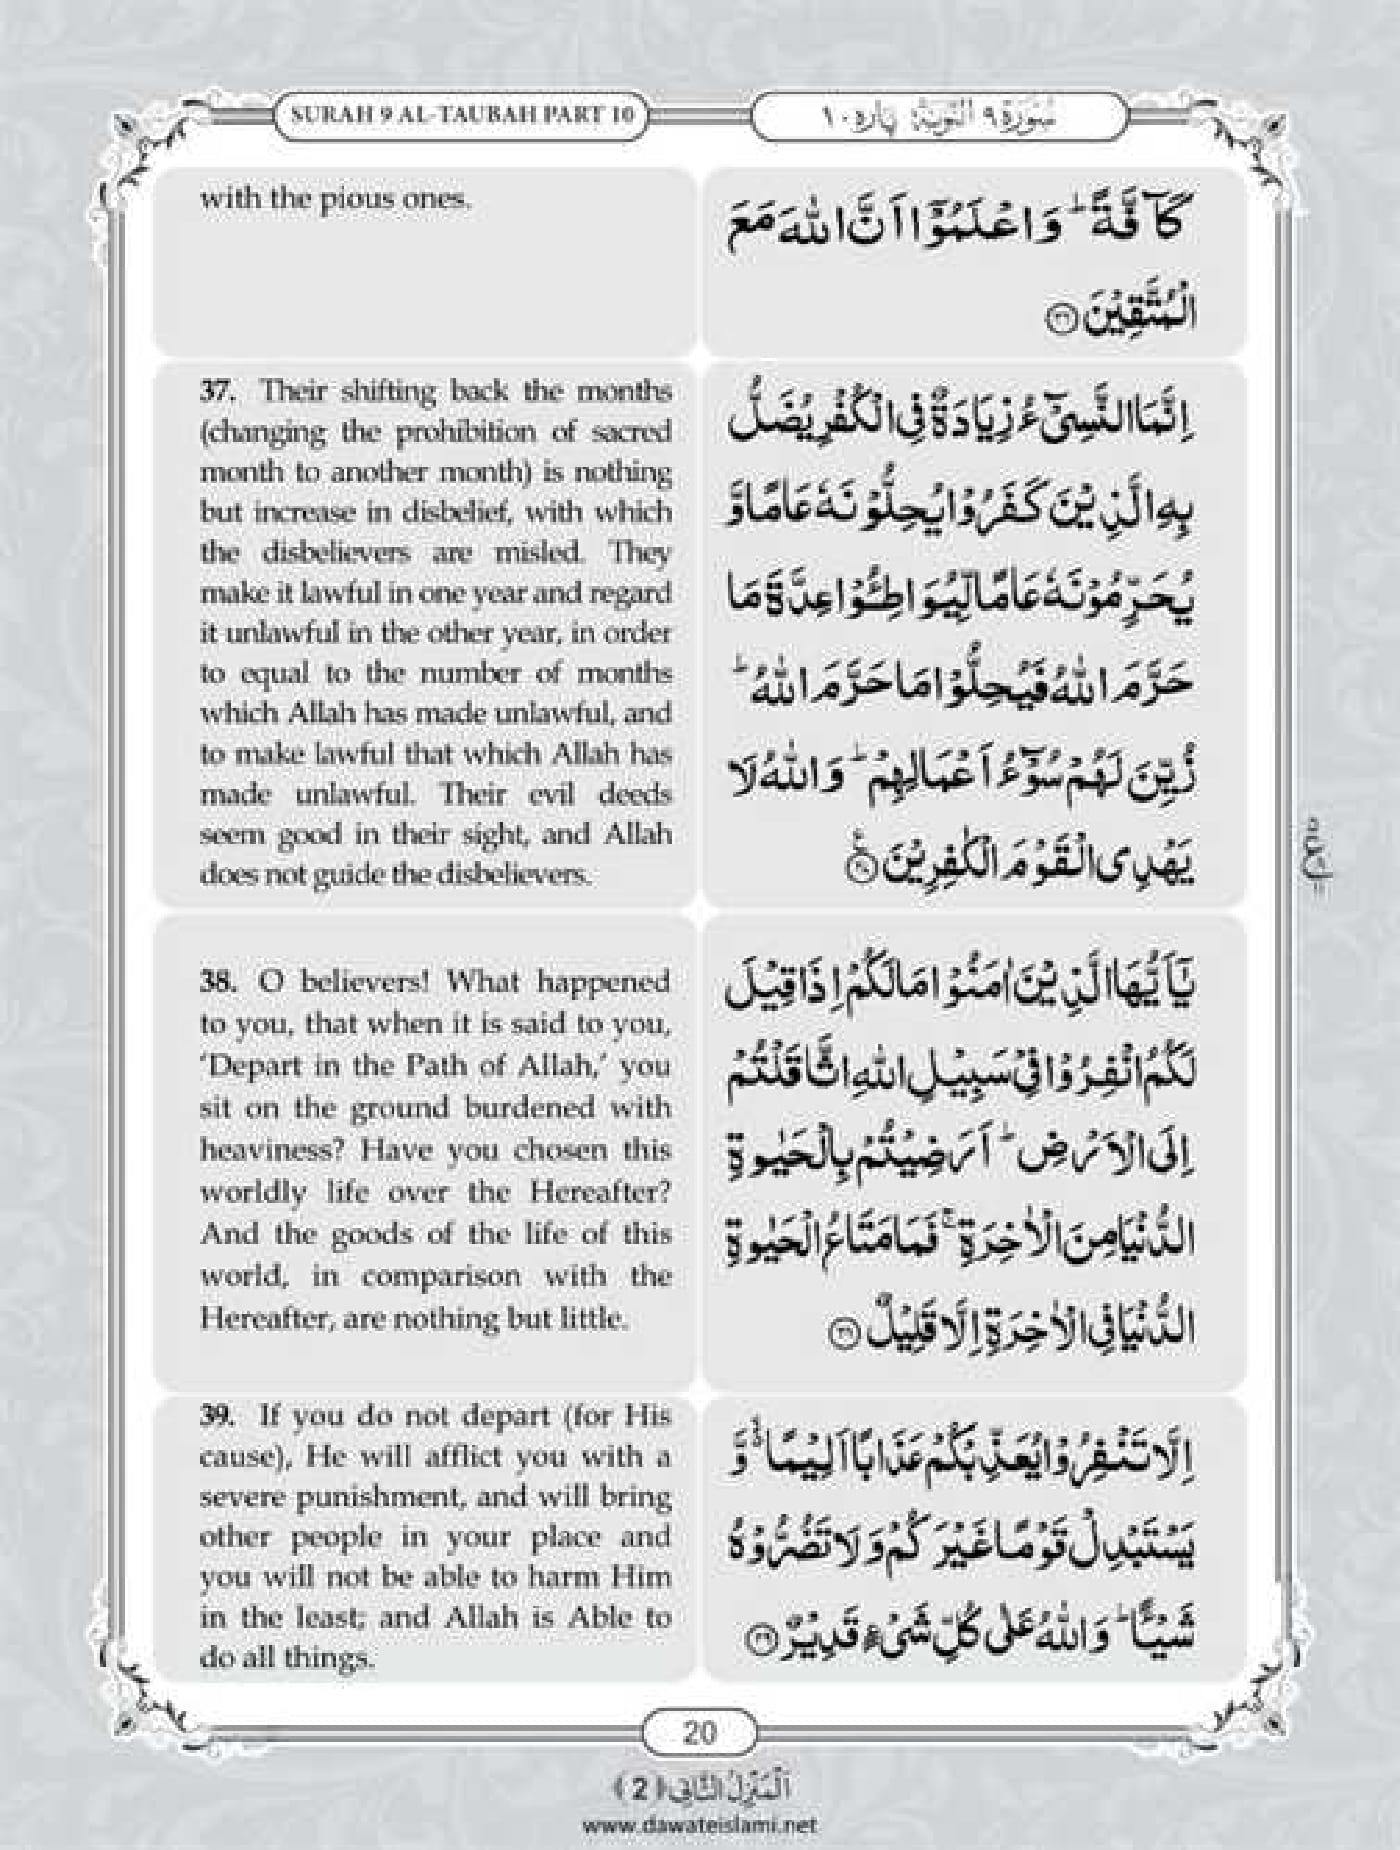 SURAH 9 AL-TAUBAH PART 10
سُوْرَةُ ٩ اَلتَّوْبَةُ پارہ ١٠
with the pious ones.
كَآفَّةً ؕ وَاعْلَمُوْۤا اَنَّ اللّٰهَ مَعَ
الْمُتَّقِيْنَ ﴿۳۶﴾
37. Their shifting back the months
(changing the prohibition of sacred
month to another month) is nothing
but increase in disbelief, with which
the disbelievers are misled. They
make it lawful in one year and regard
it unlawful in the other year, in order
to equal to the number of months
which Allah has made unlawful, and
to make lawful that which Allah has
made unlawful. Their evil deeds
seem good in their sight, and Allah
does not guide the disbelievers.
اِنَّمَا النَّسِيْٓءُ زِيَادَةٌ فِي الْكُفْرِ يُضَلُّ
بِهِ الَّذِيْنَ كَفَرُوْا يُحِلُّوْنَهٗ عَامًا وَّ
يُحَرِّمُوْنَهٗ عَامًا لِّيُوَاطِـُٔوْا عِدَّةَ مَا
حَرَّمَ اللّٰهُ فَيُحِلُّوْا مَا حَرَّمَ اللّٰهُ ؕ
زُيِّنَ لَهُمْ سُوْٓءُ اَعْمَالِهِمْ ؕ وَاللّٰهُ لَا
يَهْدِي الْقَوْمَ الْكٰفِرِيْنَ ﴿۳۷﴾
38. O believers! What happened
to you, that when it is said to you,
‘Depart in the Path of Allah,’ you
sit on the ground burdened with
heaviness? Have you chosen this
worldly life over the Hereafter?
And the goods of the life of this
world, in comparison with the
Hereafter, are nothing but little.
يٰۤاَيُّهَا الَّذِيْنَ اٰمَنُوْا مَا لَكُمْ اِذَا قِيْلَ
لَكُمُ انْفِرُوْا فِيْ سَبِيْلِ اللّٰهِ اثَّاقَلْتُمْ
اِلَى الْاَرْضِ ؕ اَرَضِيْتُمْ بِالْحَيٰوةِ
الدُّنْيَا مِنَ الْاٰخِرَةِ ۚ فَمَا مَتَاعُ الْحَيٰوةِ
الدُّنْيَا فِي الْاٰخِرَةِ اِلَّا قَلِيْلٌ ﴿۳۸﴾
39. If you do not depart (for His
cause), He will afflict you with a
severe punishment, and will bring
other people in your place and
you will not be able to harm Him
in the least; and Allah is Able to
do all things.
اِلَّا تَنْفِرُوْا يُعَذِّبْكُمْ عَذَابًا اَلِيْمًا ۙ وَّ
يَسْتَبْدِلْ قَوْمًا غَيْرَكُمْ وَلَا تَضُرُّوْهُ
شَيْـًٔا ؕ وَاللّٰهُ عَلٰى كُلِّ شَيْءٍ قَدِيْرٌ ﴿۳۹﴾
20
اَلْمَنْزِلُ الثَّانِي ﴿2﴾
www.dawateislami.net